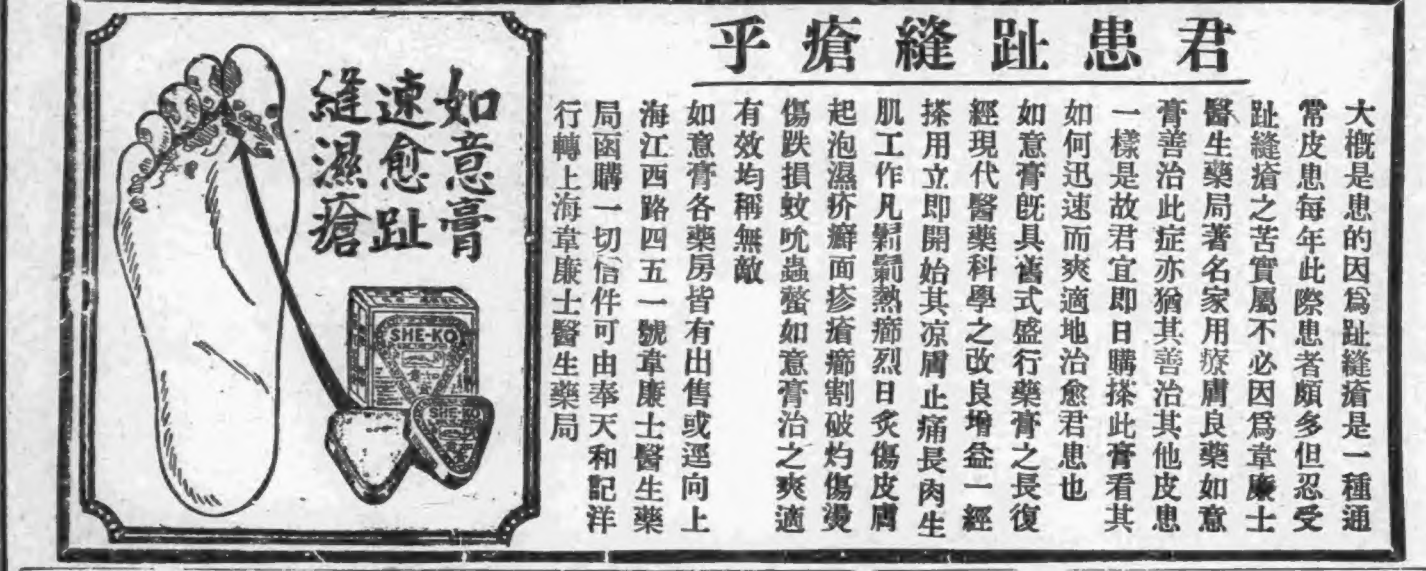 君患趾縫瘡乎
大概是患的因爲趾縫瘡是一種通
常皮患每年此際患者頗多但忍受
趾縫瘡之苦實屬不必因爲韋廉士
醫生藥局著名家用療膚良藥如意
膏善治此症亦猶其善治其他皮患
一樣是故君宜即日購搽此膏看其
如何迅速而爽適地治愈君患也
如意膏既具舊式盛行藥膏之長復
經現代醫藥科學之改良增益一經
搽用立即開始其凉膚止痛長肉生
肌工作凡鬎鬁熱癤烈日炙傷皮膚
起泡濕疥癬面疹瘡癤割破灼傷燙
傷跌損蚊吮蟲螫如意膏治之爽適
有效均稱無敵
如意膏各藥房皆有出售或逕向上
海江西路四五一號韋廉士醫生藥
局函購一切信件可由奉天和記洋
行轉上海韋廉士醫生藥局
如意膏
速愈趾
縫濕瘡
SHE-KO
SHE-KO